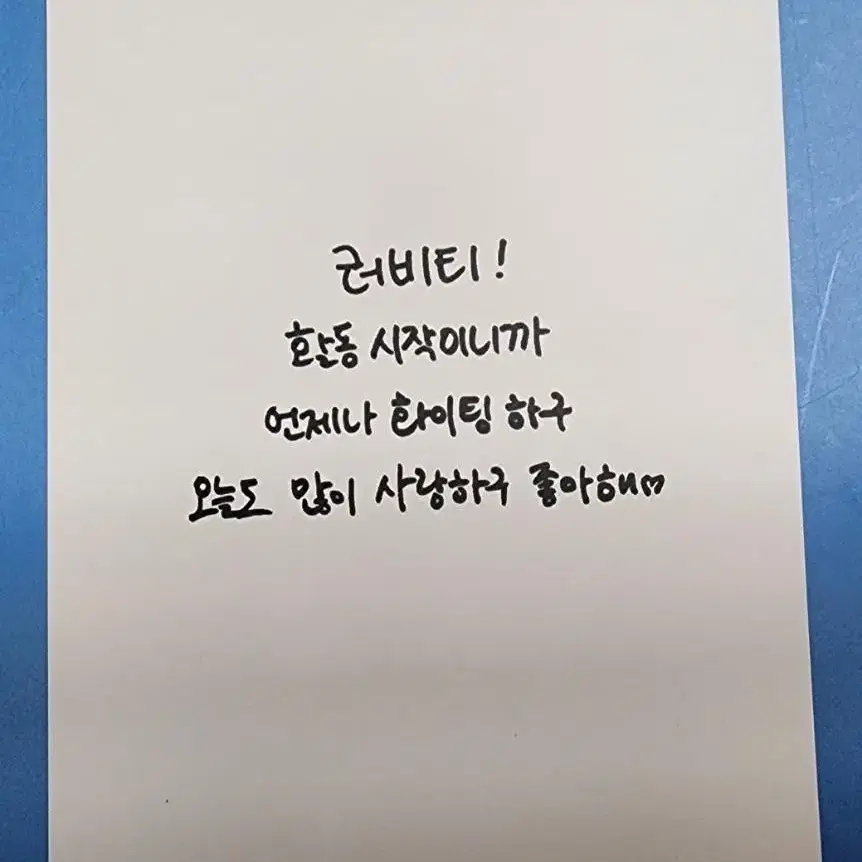 러비티!
활동 시작이니까
언제나 화이팅 하구
오늘도 많이 사랑하구 좋아해♡